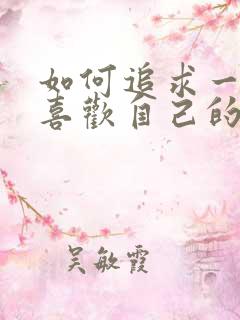 如何追求一
喜歡自己的
吴敏霞